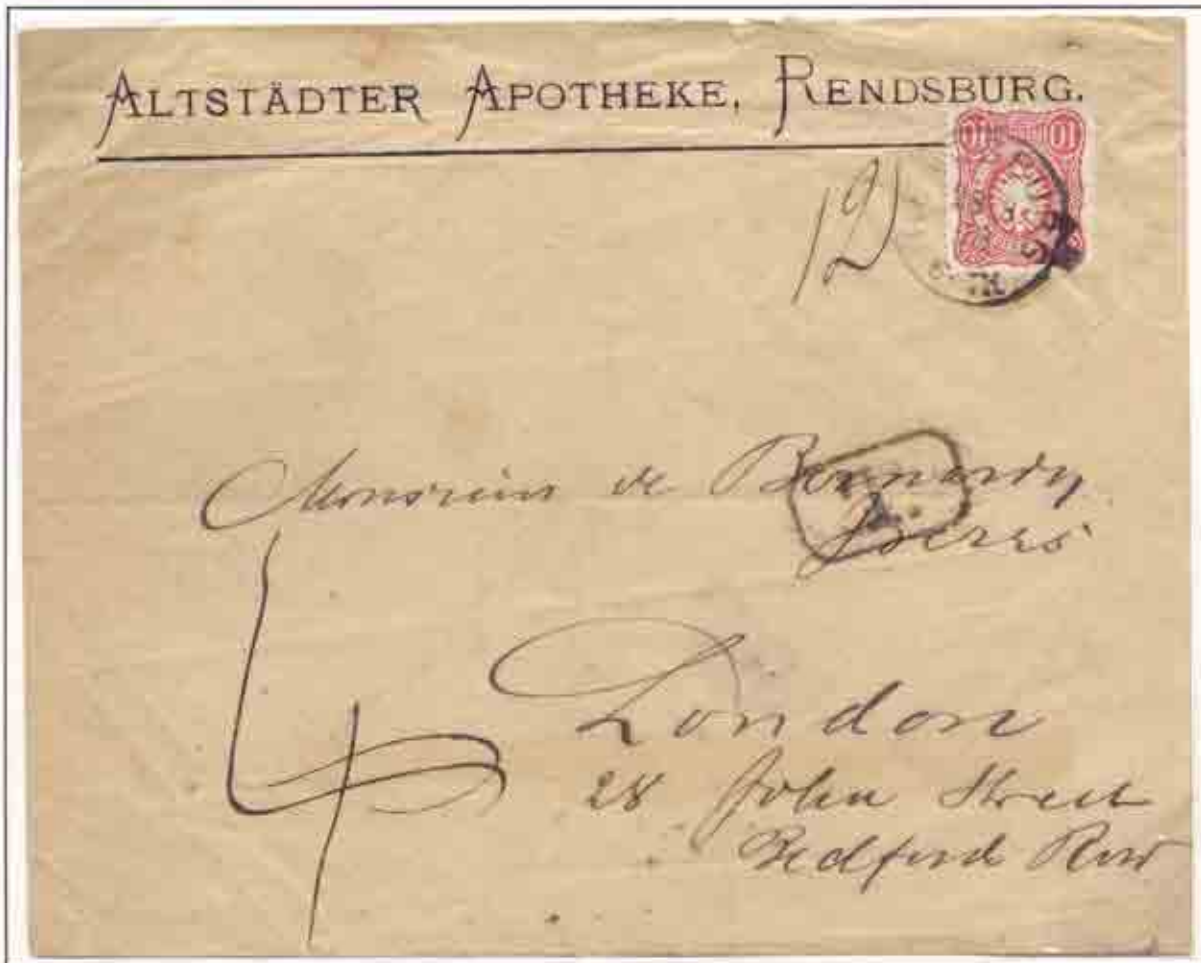 ALTSTÄDTER APOTHEKE, RENDSBURG.
10 10
12
Monsieur de Bernardy
frères
4
London
28 John Street
Bedford Row